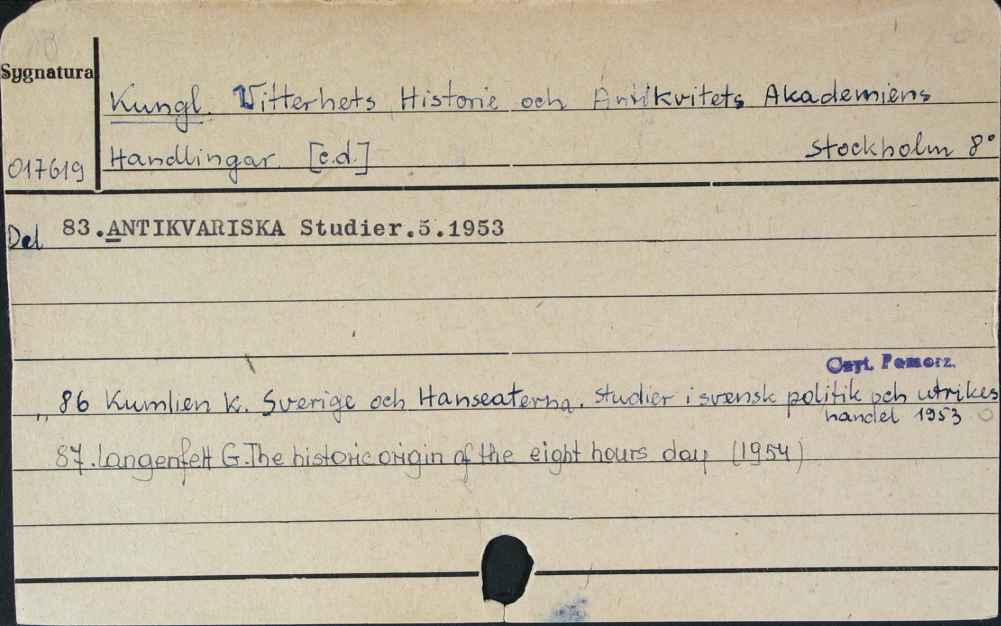 Sygnatura
Kungl. Vitterhets Historie och Antikvitets Akademiens
017619 Handlingar [c.d.] Stockholm 8°
Del 83.ANTIKVARISKA Studier.5.1953
Czyt. Pomorz.
„ 86 Kumlien K. Sverige och Hanseaterna. Studier i svensk politik och utrikes
handel 1953
87. Langenfelt G. The historic origin of the eight hours day (1954)